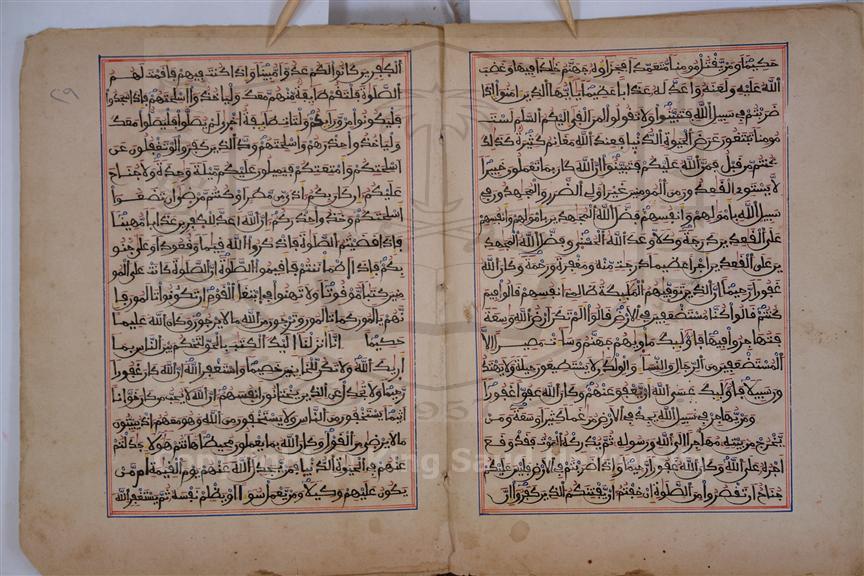 حكيما ومن يقتل مومنا متعمدا فجزاوه جهنم خلدا فيها وغضب
الله عليه ولعنه واعد له عذابا عظيما يايها الذين امنوا اذا
ضربتم في سبيل الله فتبينوا ولا تقولوا لمن القى اليكم السلم لست
مومنا تبتغون عرض الحيوة الدنيا فعند الله مغانم كثيرة كذلك
كنتم من قبل فمن الله عليكم فتبينوا ان الله كان بما تعملون خبيرا
لا يستوي القعدون من المومنين غير اولي الضرر والمجهدون في
سبيل الله باموالهم وانفسهم فضل الله المجهدين باموالهم وانفسهم
على القعدين درجة وكلا وعد الله الحسنى وفضل الله المجهد
ين على القعدين اجرا عظيما درجت منه ومغفرة ورحمة وكان الله
غفورا رحيما ان الذين توفيهم المليكة ظالمي انفسهم قالوا فيم
كنتم قالوا كنا مستضعفين في الارض قالوا الم تكن ارض الله وسعة
فتهاجروا فيها فاوليك ماويهم جهنم وساءت مصيرا الا
المستضعفين من الرجال والنساء والولدن لا يستطيعون حيلة ولا يهتدو
ن سبيلا فاوليك عسى الله ان يعفو عنهم وكان الله عفوا غفورا
ومن يهاجر في سبيل الله يجد في الارض مرغما كثيرا وسعة ومن
يخرج من بيته مهاجرا الى الله ورسوله ثم يدركه الموت فقد وقع
اجره على الله وكان الله غفورا رحيما واذا ضربتم في الارض فليس عليكم
جناح ان تقصروا من الصلوة ان خفتم ان يفتنكم الذين كفروا ان
الكفرين كانوا لكم عدوا مبينا واذا كنت فيهم فاقمت لهم
الصلوة فلتقم طايفة منهم معك ولياخذوا اسلحتهم فاذا سجدوا
فليكونوا من ورايكم ولتات طايفة اخرى لم يصلوا فليصلوا معك
ولياخذوا حذرهم واسلحتهم ود الذين كفروا لو تغفلون عن
اسلحتكم وامتعتكم فيميلون عليكم ميلة وحدة ولا جناح
عليكم ان كان بكم اذى من مطر او كنتم مرضى ان تضعوا
اسلحتكم وخذوا حذركم ان الله اعد للكفرين عذابا مهينا
فاذا قضيتم الصلوة فاذكروا الله قيما وقعودا وعلى جنو
بكم فاذا اطماننتم فاقيموا الصلوة ان الصلوة كانت على المو
منين كتبا موقوتا ولا تهنوا في ابتغاء القوم ان تكونوا تالمون فا
نهم يالمون كما تالمون وترجون من الله ما لا يرجون وكان الله عليما
حكيما انا انزلنا اليك الكتب بالحق لتحكم بين الناس بما
اريك الله ولا تكن للخاينين خصيما واستغفر الله ان الله كان غفورا
رحيما ولا تجدل عن الذين يختانون انفسهم ان الله لا يحب من كان خوانا
اثيما يستخفون من الناس ولا يستخفون من الله وهو معهم اذ يبيتون
ما لا يرضى من القول وكان الله بما يعملون محيطا هانتم هولا جدلتم
عنهم في الحيوة الدنيا فمن يجدل الله عنهم يوم القيمة ام من
يكون عليهم وكيلا ومن يعمل سوءا او يظلم نفسه ثم يستغفر الله
٢٩
1957
King Saud University